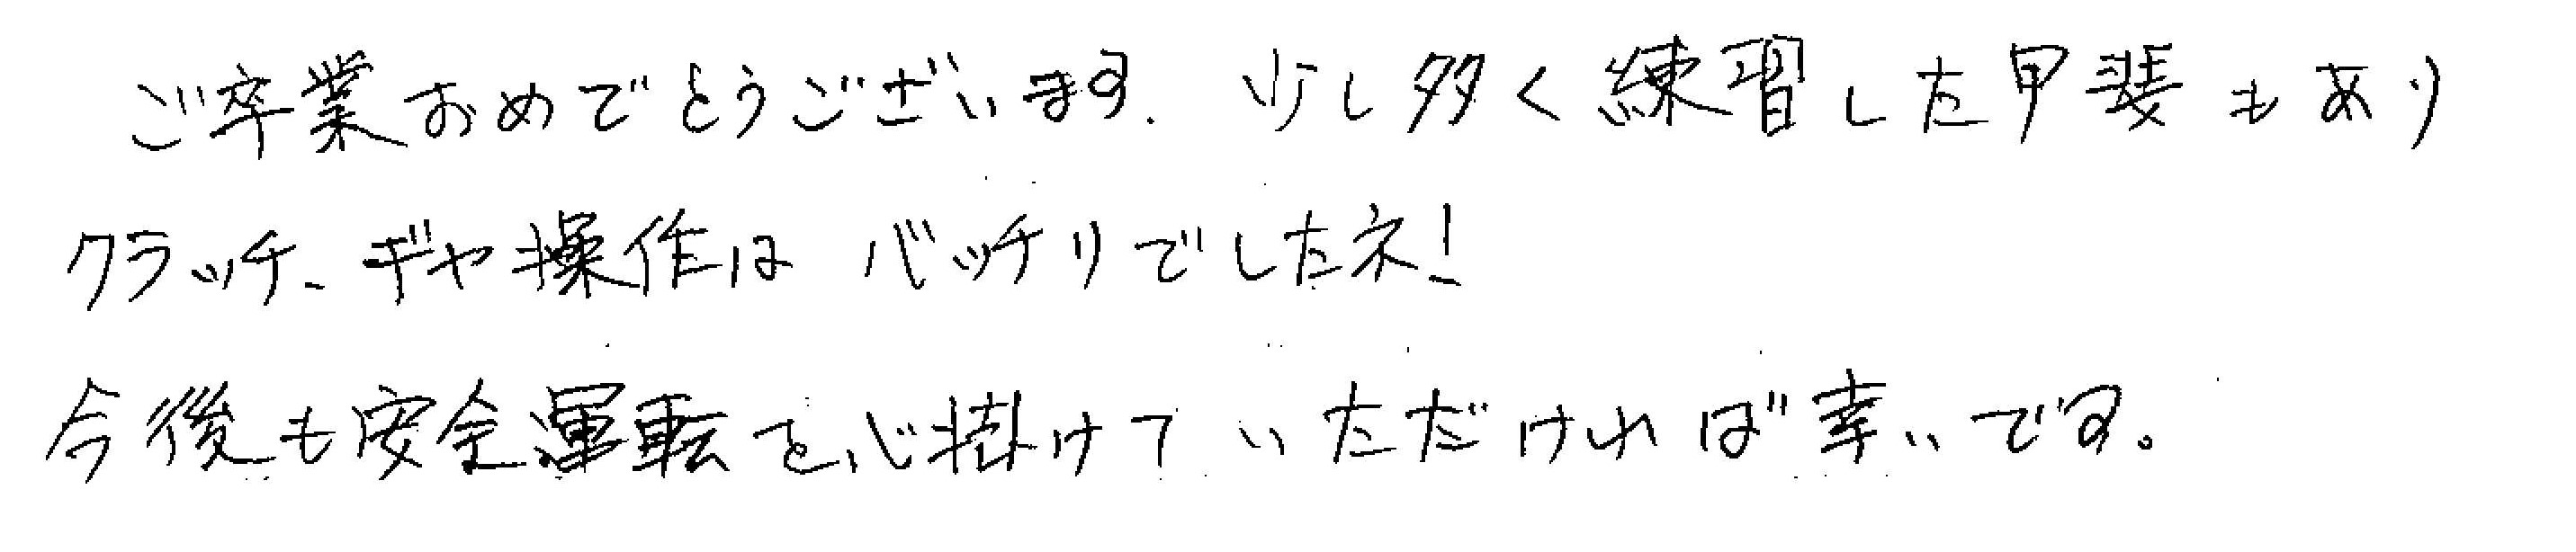 ご卒業おめでとうございます. 少し多く練習した甲斐もあり
クラッチ、ギヤ操作は バッチリでしたネ!
今後も安全運転を心掛けていただければ幸いです。